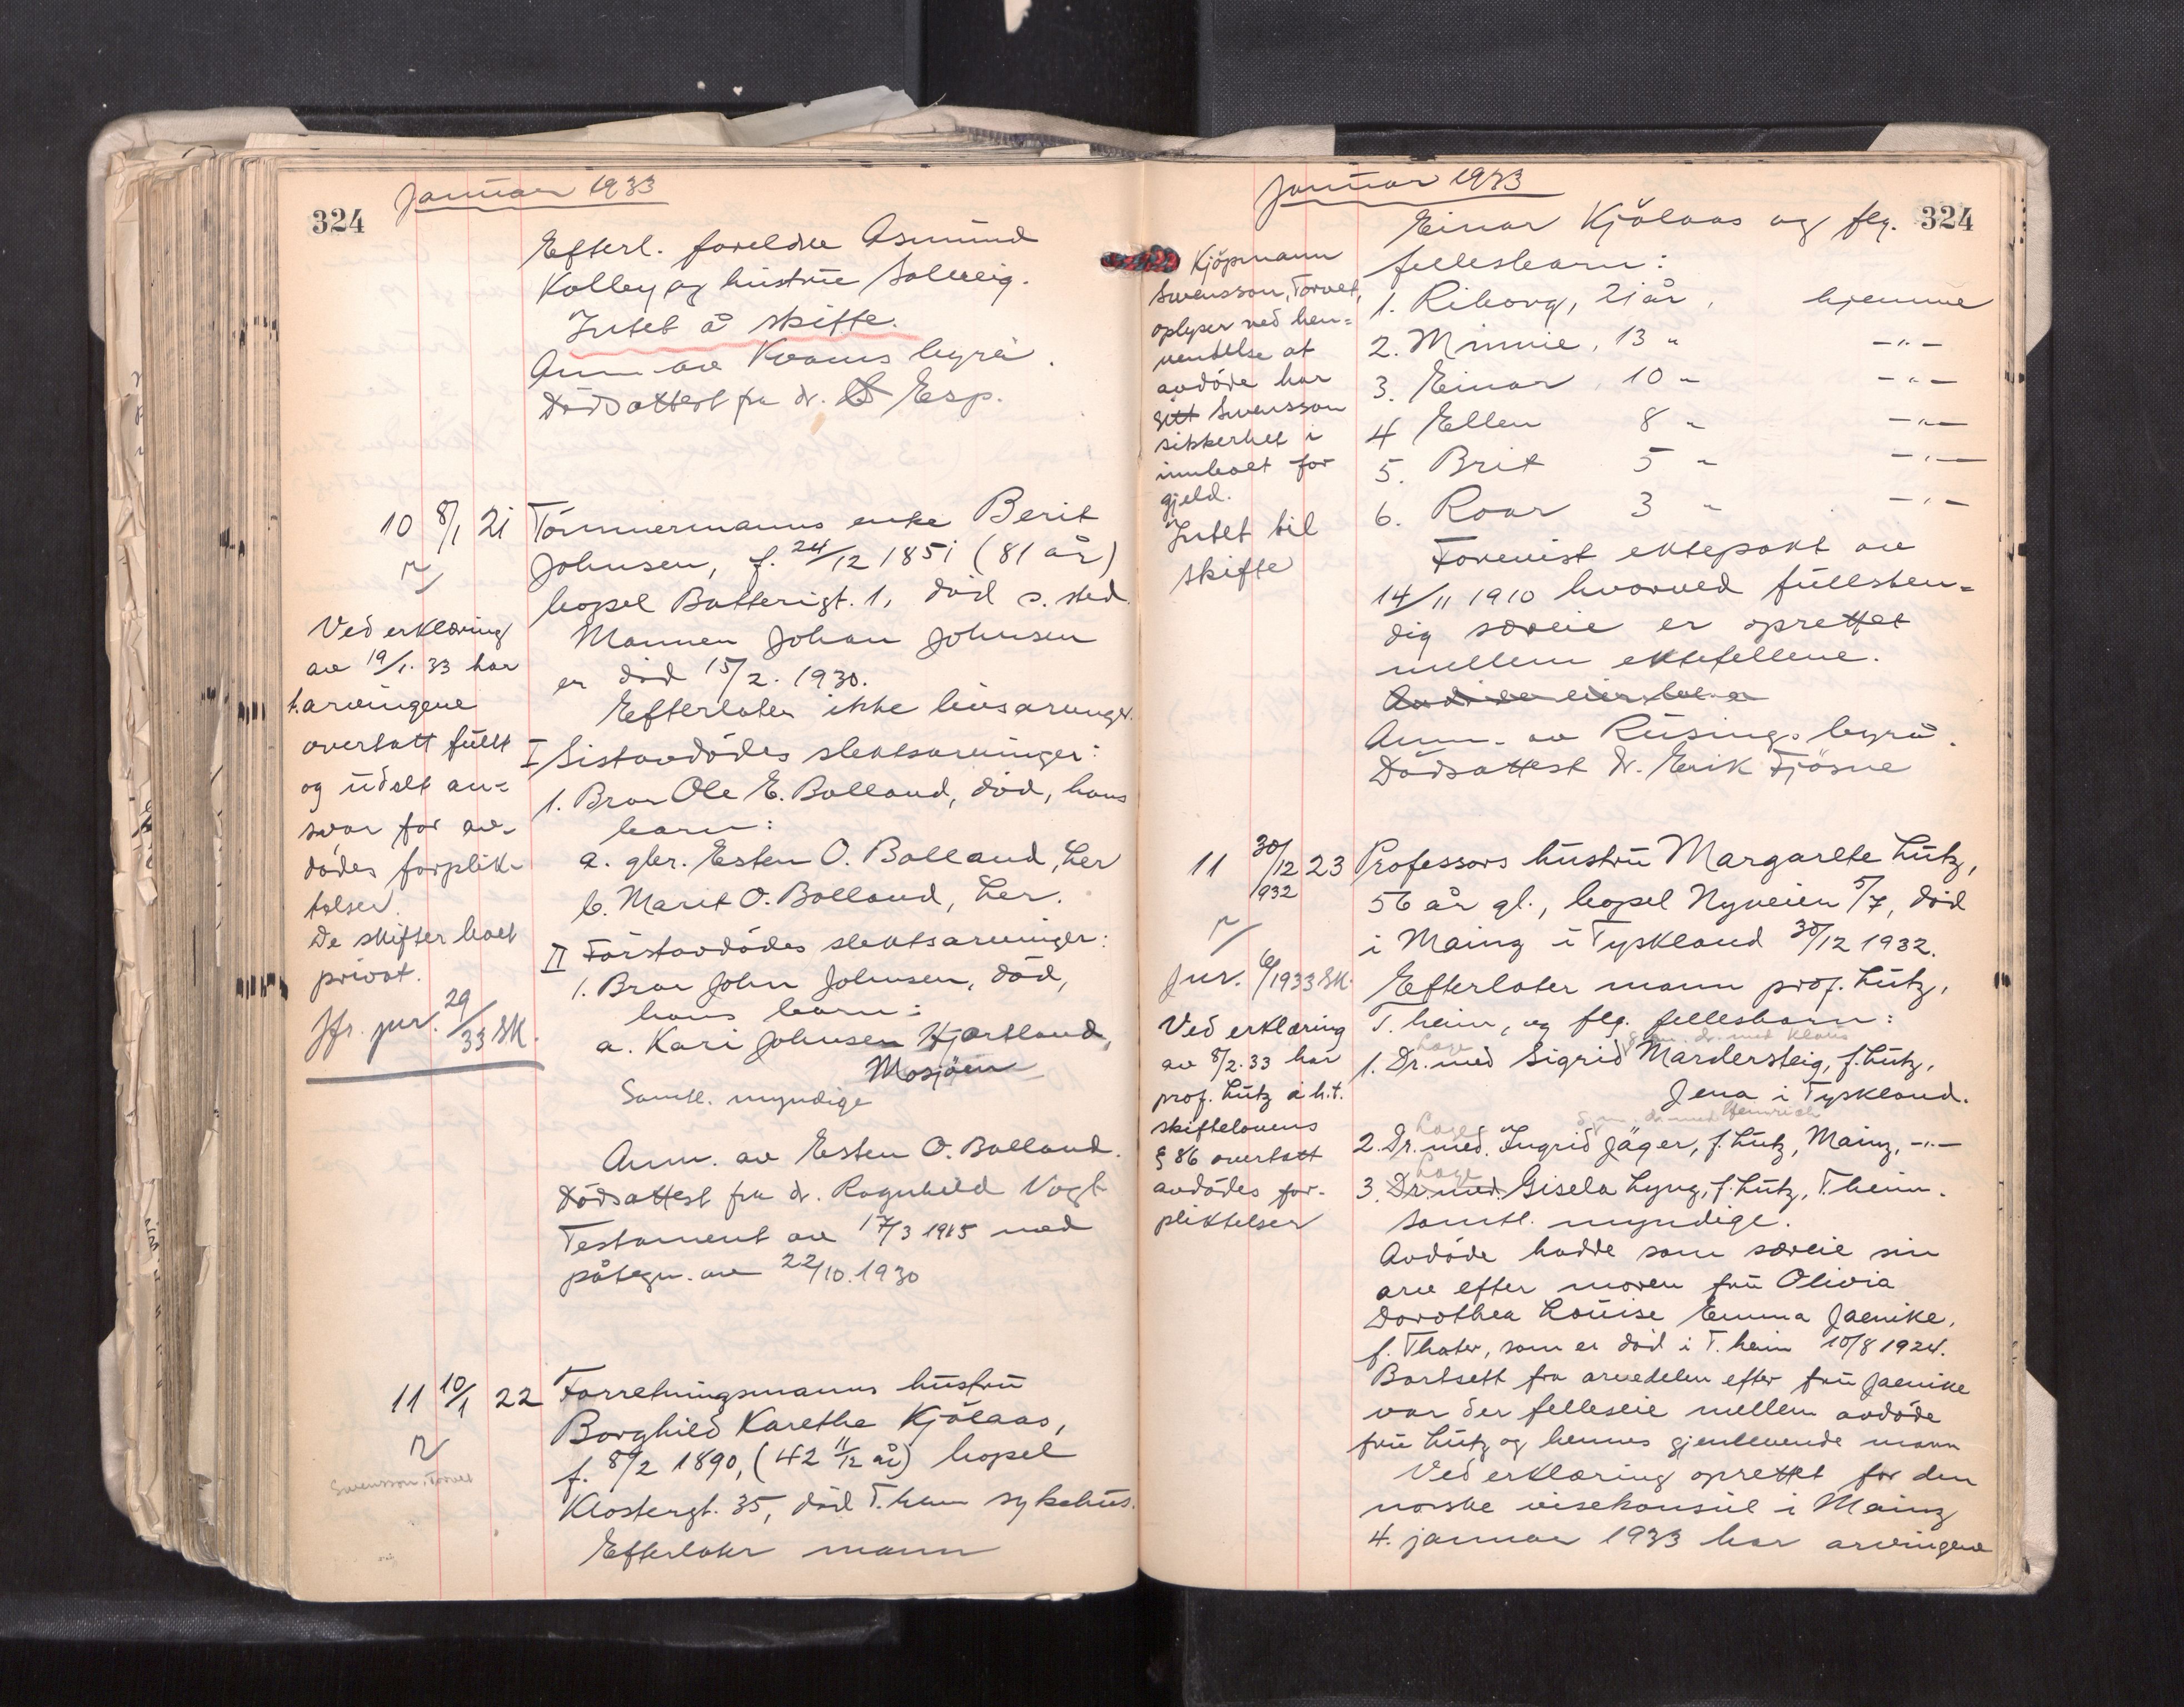 Januar 1933
324
Efterl. foreldre Asmund
Kolley og hustru Solveig.
Intet å skifte.
Anm. av Kvams byrå.
Dödsattest fra dr. Esp.
10 8/1 21 Tömmermanns enke Berit
Johnsen, f. 24/12 1851 (81 år)
bopel Batterigt. 1, död s. sted.
Mannen Johan Johnsen
er död 15/2. 1930.
Efterlater ikke livsarvinger.
I Sistavdödes slektsarvinger:
1. Bror Ole E. Bolland, död, hans
barn:
a. gbr. Esten O. Bolland, her
b. Marit O. Bolland, her.
II Förstavdödes slektsarvinger:
1. Bror John Johnsen, död,
hans barn:
a. Kari Johnsen Hjartland,
Mosjöen
Samtl. myndige
Anm. av Esten O. Bolland.
Dödsattest fra dr. Ragnhild Vogt
Testament av 17/3 1915 med
påtegn. av 22/10. 1930
Ved erklæring
av 19/1. 33 har
arvingene
overtatt fullt
og udelt an-
svar for av-
dödes forplik-
telser.
De skifter boet
privat.
Jfr. jur. 29/33 SK.
11 10/1 22 Forretningsmanns hustru
Borghild Karethe Kjölaas,
f. 8/2 1890, (42 11/12 år) bopel
Klostergt. 35, död T.heim sykehus.
Efterlater mann
Svensson, Torvet
Januar 1933
324
Einar Kjölaas og flg.
fellesbarn:
1. Riborg, 21 år, hjemme
2. Minnie, 13 " -"-
3. Einar, 10 " -"-
4 Ellen 8 " -"-
5. Brit 5 " -"-
6. Roar 3 " -"-
Forevist ektepakt av
14/11 1910 hvorved fullsten-
dig særeie er oprettet
mellem ektefellene.
Anm. av Rüsings byrå.
Dödsattest dr. Erik Fjösne
Kjöpmann
Svensson, Torvet,
oplyser ved hen-
vendelse at
avdöde har
gitt Svensson
sikkerhet i
innboet for
gjeld.
Intet til
skifte
11 30/12 1932 23 Professors hustru Margarete Lutz,
56 år gl., bopel Nyveien 5/7, död
i Mainz i Tyskland 30/12 1932.
Efterlater mann prof. Lutz,
T.heim, og flg. fellesbarn:
Læge g.m. dr. med Klaus
1. Dr. med Sigrid Mardersteig, f. Lutz,
Jena i Tyskland.
Læge g.m. dr. med Heinrich
2. Dr. med. Ingrid Jäger, f. Lutz, Mainz, -"-
Læge
3. Dr med. Gisela Lyng, f. Lutz, T.heim.
Samtl. myndige.
Avdöde hadde som særeie sin
arv efter moren fru Olivia
Dorothea Louise Emma Jaenike,
f. Thater, som er död i T.heim 10/8 1924.
Bortsett fra arvedelen efter fru Jaenike
var der felleseie mellem avdöde
fru Lutz og hennes gjenlevende mann
Ved erklæring oprettet for den
norske visekonsul i Mainz
4. januar 1933 har arvingene
Jur. 6/1933 SK.
Ved erklæring
av 8/2. 33 har
prof. Lutz i h.t.
skiftelovens
§ 86 overtatt
avdödes for-
pliktelser